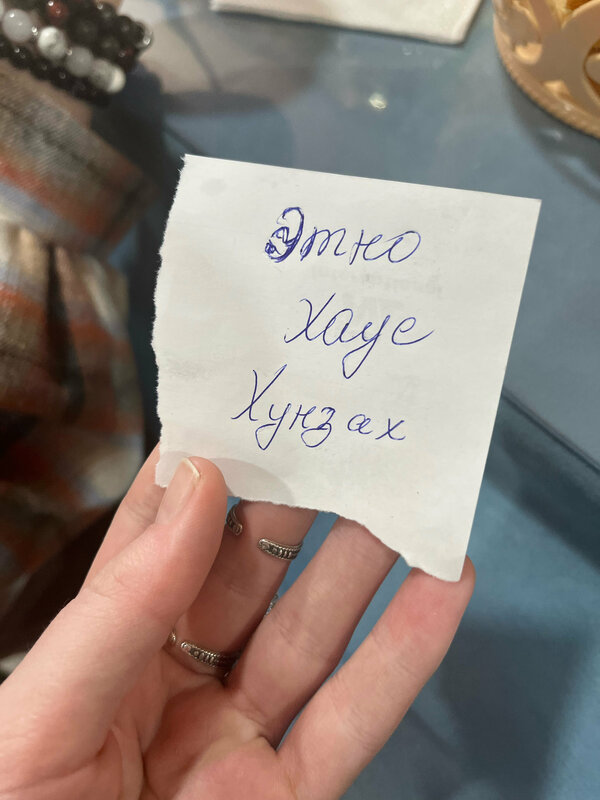 Этно
Хаус
Хунзах